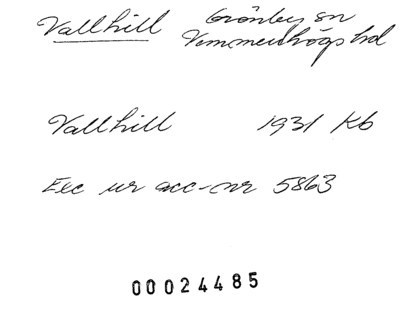 Vallhill Grönby sn
Vemmenhögs hd
Vallhill 1931 Kb
Exc ur acc-nr 5863
00024485